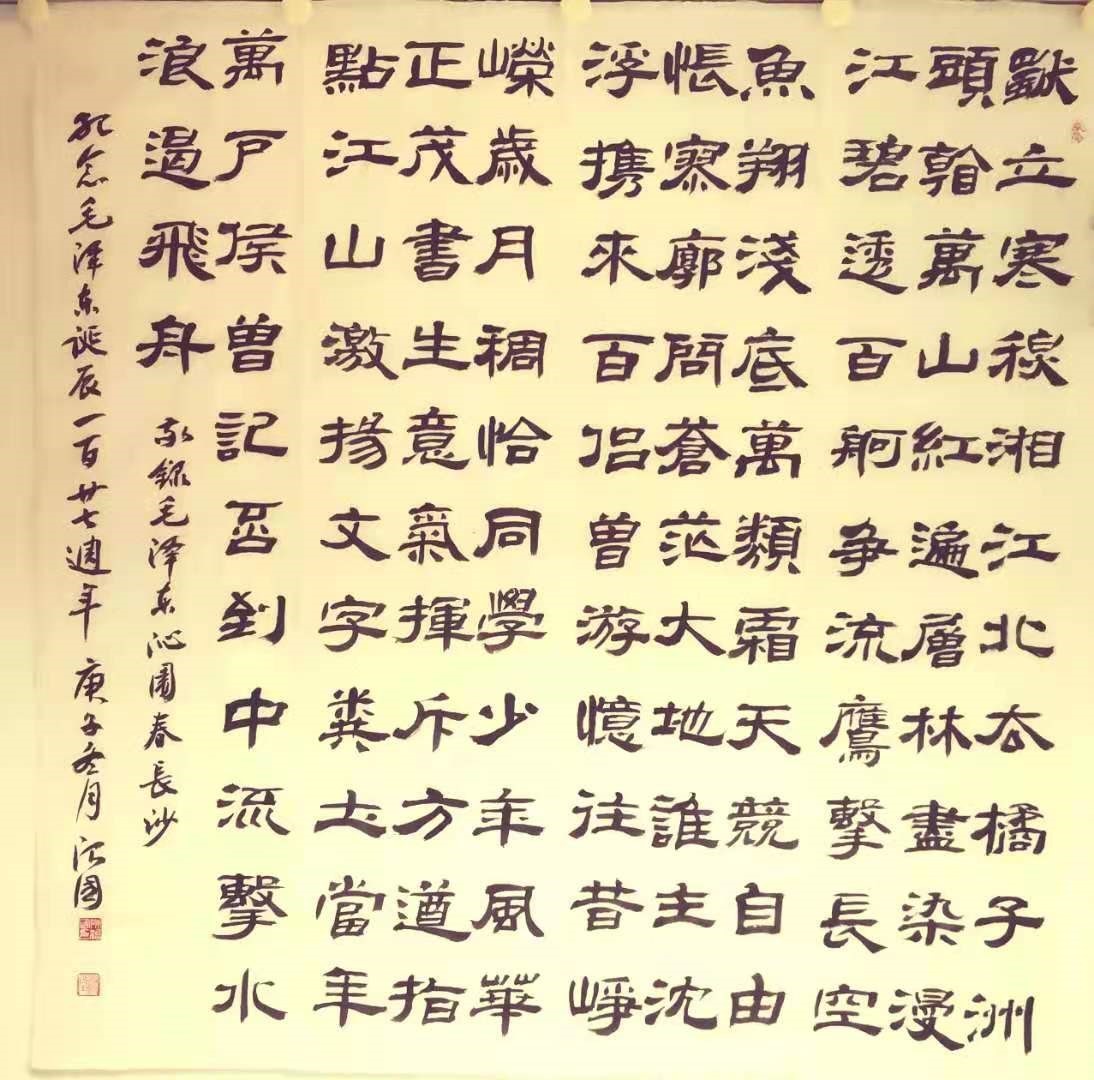 獨立寒秋湘江北去橘子洲
頭看萬山紅遍層林盡染漫
江碧透百舸争流鷹擊長空
魚翔淺底萬類霜天競自由
悵寥廓問蒼茫大地誰主沈
浮携來百侣曾游憶往昔崢
嶸歲月稠恰同學少年風華
正茂書生意氣揮斥方遒指
點江山激揚文字糞土當年
萬户侯曾記否到中流擊水
浪遏飛舟
敬録毛泽东沁園春長沙
紀念毛泽东誕辰一百廿七週年 庚子冬月 國